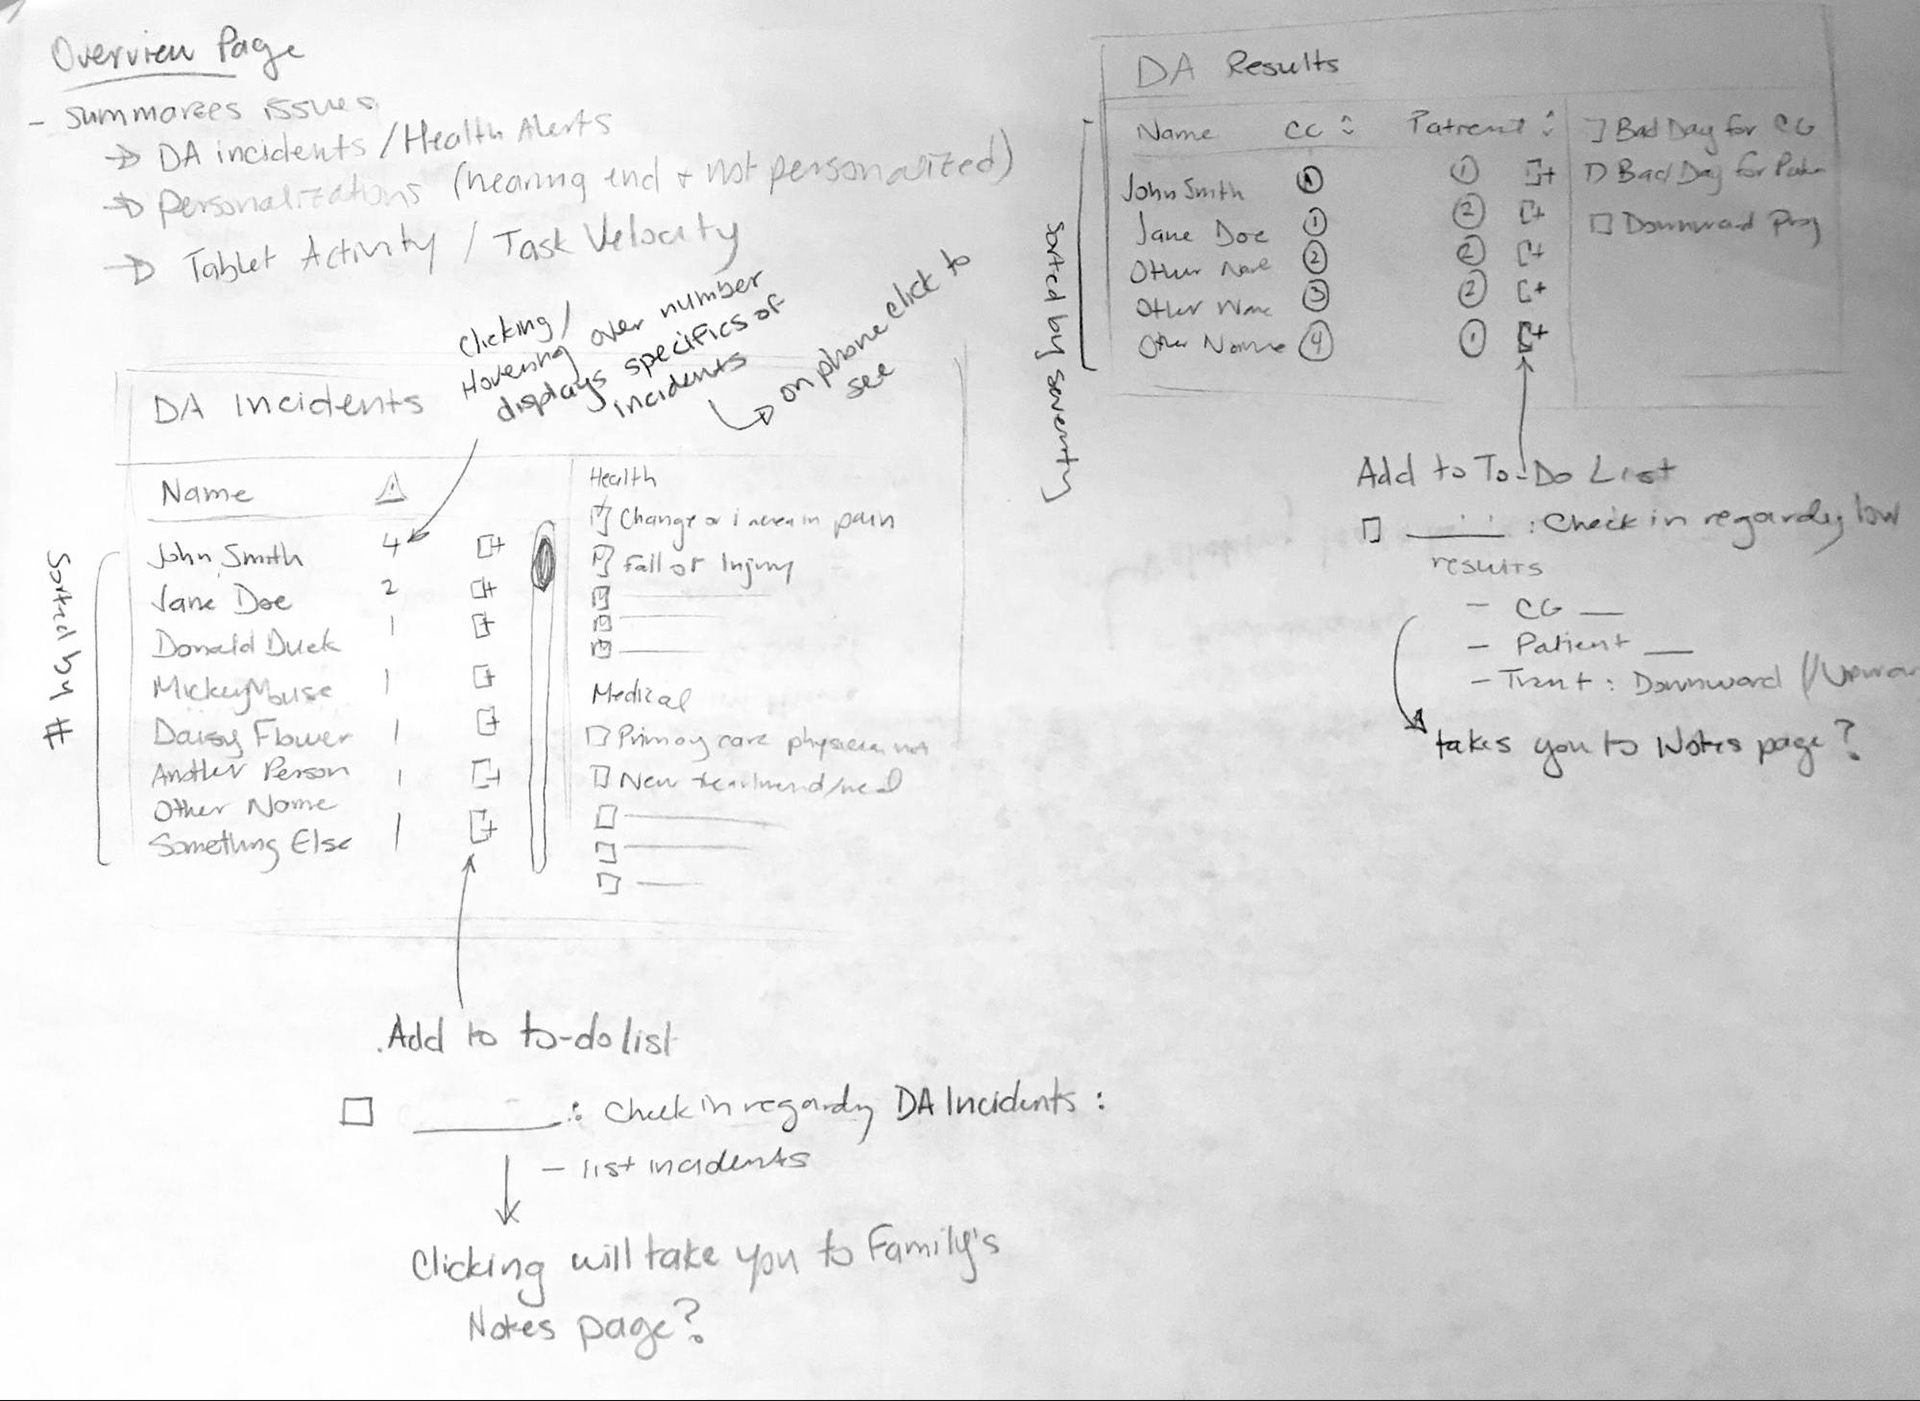 Overview Page
- Summarzes issues
→ DA incidents / Health Alerts
→ Personalizations (nearing end + not personalized)
→ Tablet Activity / Task Velocity
Clicking /
Hovering over number
displays specifics of
incidents
→ on phone click to
see
DA Incidents
Name
John Smith 4
Jane Doe 2
Donald Duck 1
Mickey Mouse 1
Daisy Flower 1
Another Person 1
Other Name
Something Else 1
Sorted by #
Health
Change or in pain
Fall or Injury
Medical
Primary care physician
New
Add to to-do list
: Check in regarding DA Incidents :
- list incidents
Clicking will take you to Family's
Notes page?
DA Results
Name Patient
John Smith 1
Jane Doe 1 2
Other Name 2 2
Other Name 3 2
Other Name 4 1
Sorted by severity
Bad Day for CG
Bad Day for
Downward Prog
Add to To-Do List
: Check in regarding low
results
- CG
- Patient
- : Downward /
takes you to Notes page?